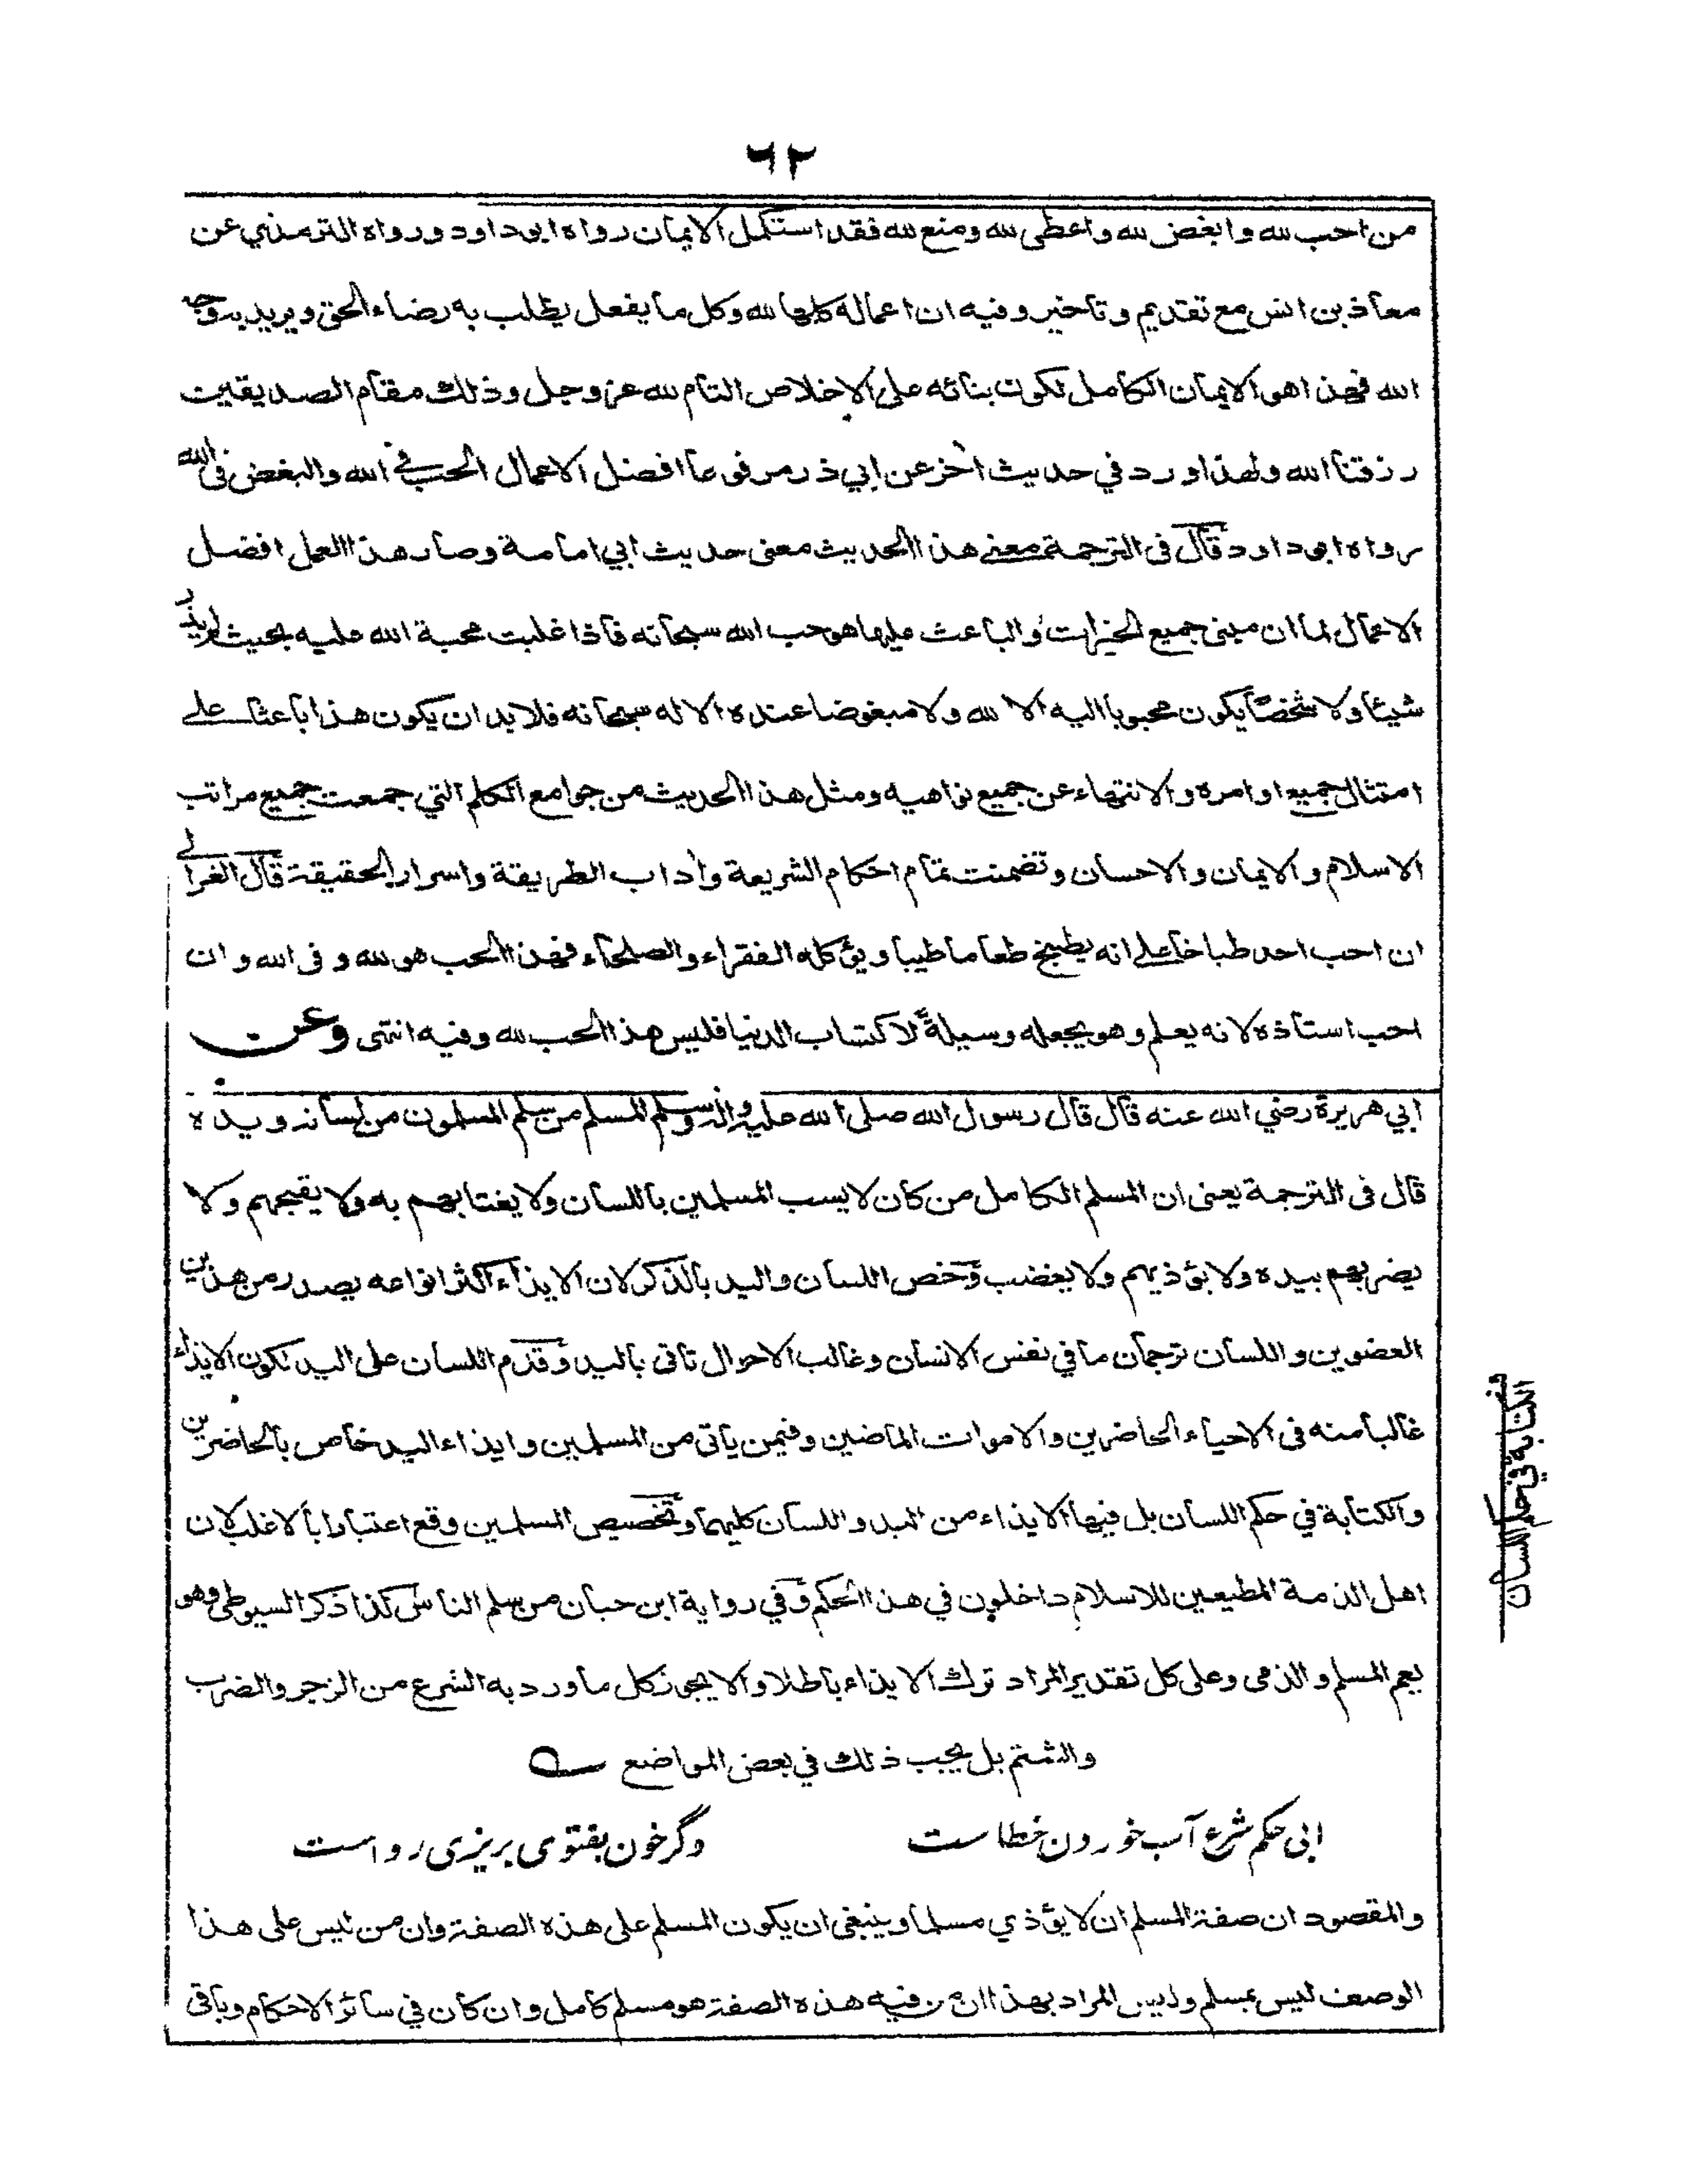 ٦٢
من احب لله وابغض لله واعطى لله ومنع لله فقد استكمل الايمان رواه ابوداود ورواه الترمذي عن
معاذ بن انس مع تقديم وتاخير وفيه ان اعماله كلها لله وكل ما يفعل يطلب به رضاء الحق ويريد به وجه
الله فهذا هو الايمان الكامل لكون بنائه على الاخلاص التام لله عز وجل وذلك مقام الصديقين
رزقنا الله ولهذا ورد في حديث اخر عن ابي ذر مرفوعا افضل الاعمال الحب في الله والبغض في الله
رواه ابوداود قال فى الترجمة معنى هذا الحديث معنى حديث ابي امامة وصار هذا العمل افضل
الاعمال لما ان مبنى جميع الخيرات والباعث عليها هو حب الله سبحانه فاذا غلبت محبة الله عليه بحيث لم يذر
شيئا ولا شخصا يكون محبوبا اليه الا لله ولا مبغوضا عنده الا له سبحانه فلا بد ان يكون هذا باعثا على
امتثال جميع اوامره والانتهاء عن جميع نواهيه ومثل هذا الحديث من جوامع الكلم التي جمعت جميع مراتب
الاسلام والايمان والاحسان وتضمنت تمام احكام الشريعة واداب الطريقة واسرار الحقيقة قال الغزالي
ان احب احد طباخا على انه يطبخ طعاما طيبا ويؤكله الفقراء والصلحاء فهذا الحب هو لله وفى الله وان
احب استاذه لانه يعلم وهو يجعله وسيلةً لاكتساب الدنيا فليس هذا الحب لله وفيه انتهى وعن
ابي هريرة رضي الله عنه قال قال رسول الله صلى الله عليه واله وسلم المسلم من سلم المسلمون من لسانه ويده
قال فى الترجمة يعنى ان المسلم الكامل من كان لا يسب المسلمين باللسان ولا يغتابهم به ولا يقبحهم ولا
يضربهم بيده ولا يؤذيهم ولا يغضب وخص اللسان واليد بالذكر لان الايذاء اكثر انواعه يصدر من هذين
العضوين واللسان ترجمان ما في نفس الانسان وغالب الاحوال تاتى باليد وقدم اللسان على اليد لكون الايذاء
غالبا منه فى الاحياء الحاضرين والاموات الماضين وفيمن ياتى من المسلمين وايذاء اليد خاص بالحاضرين
والكتابة في حكم اللسان بل فيها الايذاء من اليد واللسان كليهما وتخصيص المسلمين وقع اعتبارا بالاغلب لان
اهل الذمة المطيعين للاسلام داخلون في هذا الحكم وفي رواية ابن حبان من سلم الناس كذا ذكر السيوطى وهو
يعم المسلم والذمى وعلى كل تقدير المراد ترك الايذاء باطلا والا يجوز كل ما ورد به الشرع من الزجر والضرب
والشتم بل يجب ذلك في بعض المواضع
ابى حكم شرع آب خوردن خطاست وگر خون بفتوى بريزى رواست
والمقصود ان صفة المسلم ان لا يؤذي مسلما وينبغى ان يكون المسلم على هذه الصفة وان من ليس على هذا
الوصف ليس بمسلم وليس المراد بهذا ان من فيه هذه الصفة هو مسلم كامل وان كان في سائر الاحكام وباقى
الكتابة في حكم اللسان